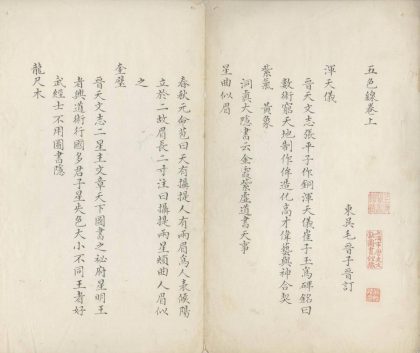 五色線卷上
東吳毛晉子晉訂
渾天儀
晉天文志張平子作銅渾天儀崔子玉爲碑銘曰
數術窮天地制作侔造化高才偉藝與神合契
紫氣 黃象
洞真大隱書云金霞紫虛道書天事
星曲似眉
春秋元命苞曰天有攝提人有兩眉爲人表候陽
立於二故眉長二寸注曰攝提兩星頗曲人眉似
之
奎壁
晉天文志二星主文章天下圖書之祕府星明王
者興道術行國多君子星失色大小不同王者好
武經士不用圖書隱
龍尺木